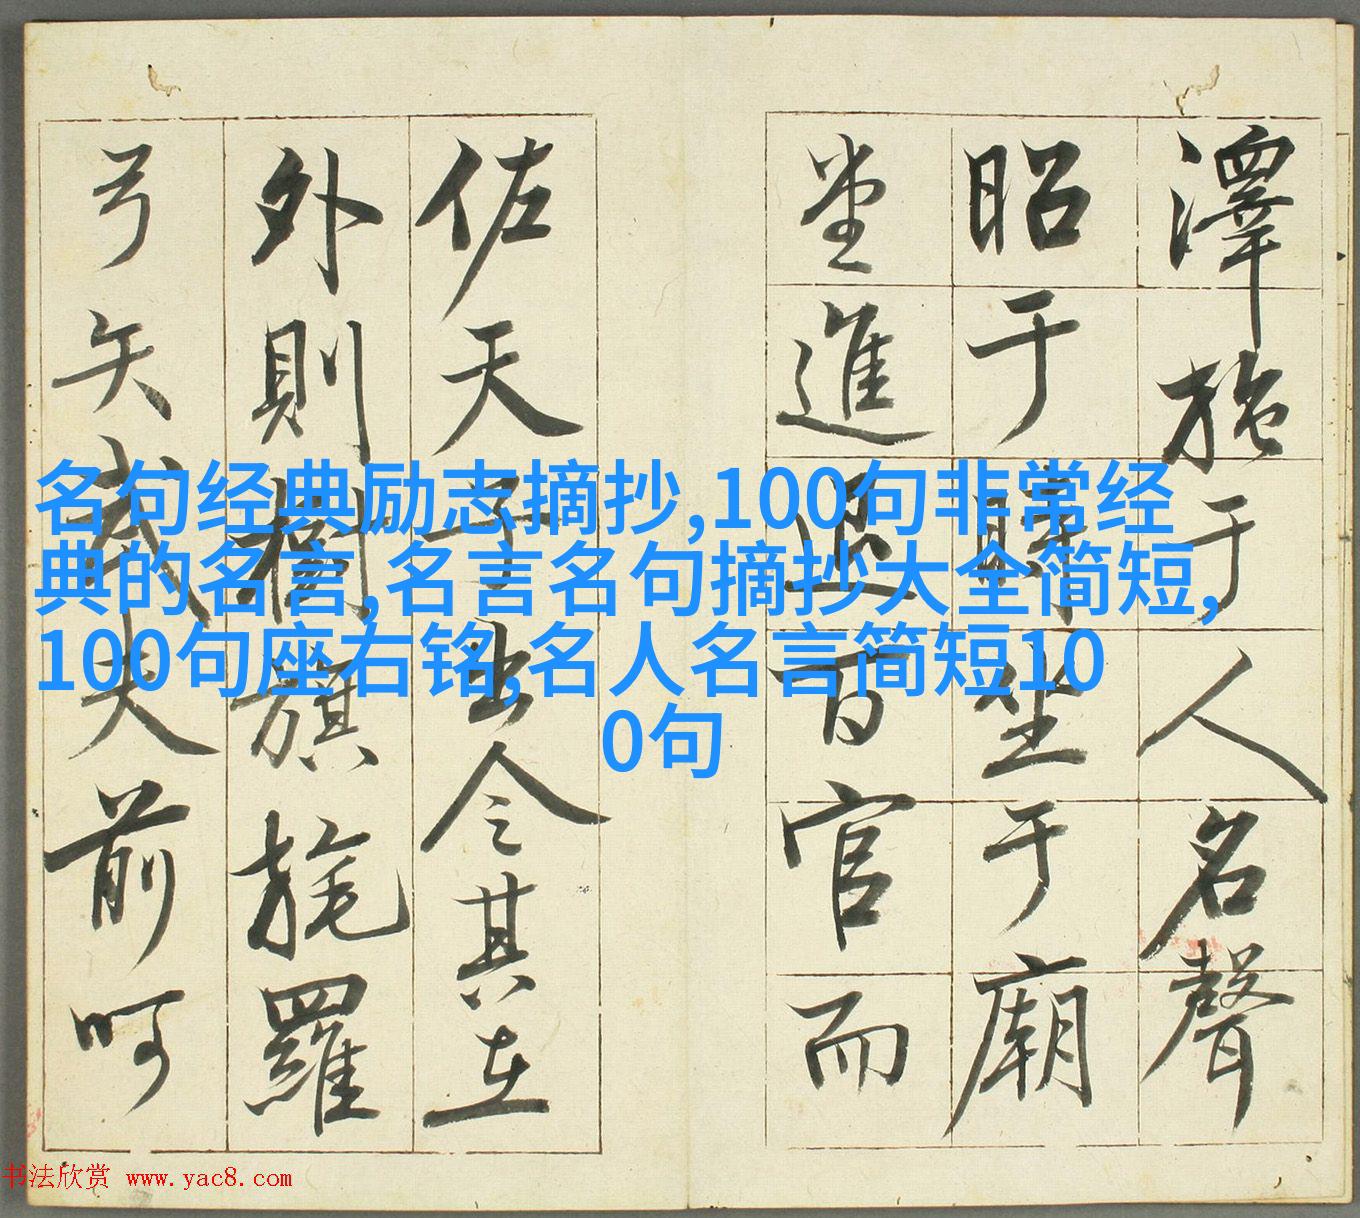 澤施于人名聲
昭于時坐于廟
堂進退百官而
佐天子出令其在
外則樹旗旄羅
弓矢武夫前呵
名句经典励志摘抄,100句非常经
典的名言,名言名句摘抄大全简短,
100句座右铭,名人名言简短10
0句
书法欣赏 www.yac8.com